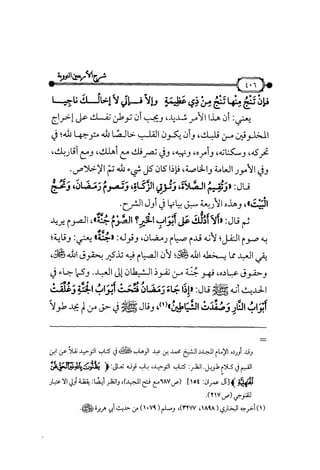 شرح الأربعين النووية
٤٠٦
فإن تنج منها تنج من ذي عظيمة وإلا فإني لا إخالك ناجيا
يعني: أن هذا الأمر شديد، ويجب أن توطن نفسك على إخراج
المخلوقين من قلبك، وأن يكون القلب خالصًا لله متوجهًا لله؛ في
تحركه، وسكناته، وأمره، ونهيه، وفي تصرفك مع أهلك، ومع أقاربك،
وفي الأمور العامة والخاصة، فإذا كان كل شيء لله تمّ الإخلاص.
قال: «وَتُقِيمُ الصَّلَاةَ، وَتُؤْتِي الزَّكَاةَ، وَتَصُومُ رَمَضَانَ، وَتَحُجُّ
الْبَيْتَ»، وهذه الأربعة سبق بيانها في أول الشرح.
ثم قال: «أَلَا أَدُلُّكَ عَلَى أَبْوَابِ الْخَيْرِ؟ الصَّوْمُ جُنَّةٌ»، الصوم يريد
به صوم النفل؛ لأنه قدم صيام رمضان، وقوله: «جُنَّةٌ» يعني: وقاية؛
يقي العبد مما يسخطه الله ﷻ؛ لأن الصيام فيه تذكير بحقوق الله ﷻ،
وحقوق عباده، فهو جُنة من نفوذ الشيطان إلى العبد. وكما جاء في
الحديث أنه ﷺ قال: «إِذَا جَاءَ رَمَضَانُ فُتِحَتْ أَبْوَابُ الْجَنَّةِ وَغُلِّقَتْ
أَبْوَابُ النَّارِ وَصُفِّدَتِ الشَّيَاطِينُ»(١)، وقال ﷺ في حق من لم يجد طولاً
=
وقد أورده الإمام المجدد الشيخ محمد بن عبد الوهاب في كتاب التوحيد نقلاً عن ابن
القيم في كلام طويل. انظر: كتاب التوحيد، باب قوله تعالى: ﴿يَظُنُّونَ بِاللَّهِ غَيْرَ الْحَقِّ ظَنَّ
الْجَاهِلِيَّةِ﴾ [آل عمران: ١٥٤] (ص٦٨٧ مع فتح المجيد)، وانظر أيضًا: يقظة أولي الاعتبار
للقنوجي (ص٢١٧).
(١) أخرجه البخاري (١٨٩٨، ٣٢٧٧)، ومسلم (١٠٧٩) من حديث أبي هريرة